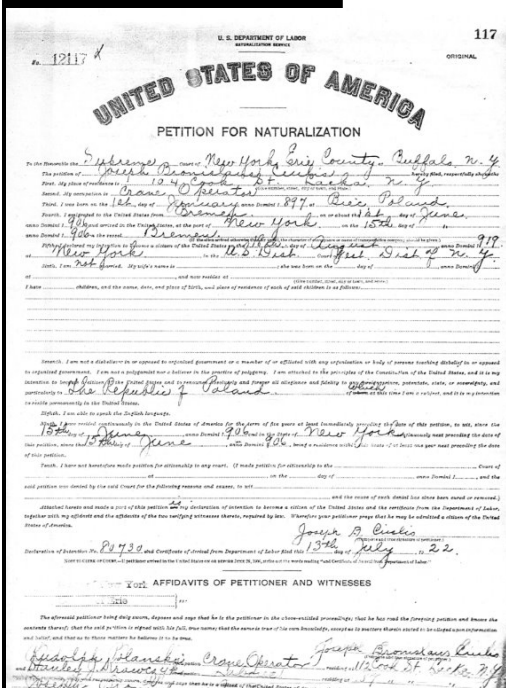 U. S. DEPARTMENT OF LABOR
NATURALIZATION SERVICE
117
No. 12117
ORIGINAL
UNITED STATES OF AMERICA
PETITION FOR NATURALIZATION
To the Honorable the Supreme Court of New York, Erie County, Buffalo, N. Y.
The petition of Joseph Bronislaus hereby filed, respectfully showeth:
First. My place of residence is 104 Cook St. Lacka. N. Y.
Second. My occupation is Crane Operator
Third. I was born on the 1st day of January anno Domini 1 897 at Poland
Fourth. I emigrated to the United States from Bremen on or about the 1st day of June
anno Domini 1 906 and arrived in the United States, at the port of New York on the 15th day of June
anno Domini 1 906 on the vessel Bremen
Fifth. I declared my intention to become a citizen of the United States on the day of August anno Domini 1 919
at New York in the U. S. Dist. Court West. Dist of N. Y.
Sixth. I am not married. My wife's name is she was born on the day of anno Domini 1
at and now resides at
I have children, and the name, date, and place of birth, and place of residence of each of said children is as follows:
Seventh. I am not a disbeliever in or opposed to organized government or a member of or affiliated with any organization or body of persons teaching disbelief in or opposed
to organized government. I am not a polygamist nor a believer in the practice of polygamy. I am attached to the principles of the Constitution of the United States, and it is my
intention to become a citizen of the United States and to renounce absolutely and forever all allegiance and fidelity to any foreign prince, potentate, state, or sovereignty, and
particularly to The Republic of Poland of which at this time I am a subject, and it is my intention
to reside permanently in the United States.
Eighth. I am able to speak the English language.
Ninth. I have resided continuously in the United States of America for the term of five years at least immediately preceding the date of this petition, to wit, since the
15th day of June anno Domini 1 906 and in the State of New York continuously next preceding the date of
this petition, since the 15th day of June, anno Domini 1 906, being a residence within this State of at least one year next preceding the date
of this petition.
Tenth. I have not heretofore made petition for citizenship to any court. (I made petition for citizenship to the Court of
at on the day of anno Domini 1 , and the
said petition was denied by the said Court for the following reasons and causes, to wit
and the cause of such denial has since been cured or removed.)
Attached hereto and made a part of this petition my declaration of intention to become a citizen of the United States and the certificate from the Department of Labor,
together with my affidavit and the affidavits of the two verifying witnesses thereto, required by law. Wherefore your petitioner prays that he may be admitted a citizen of the United
States of America.
Joseph B.
Declaration of Intention No. 80730 and Certificate of Arrival from Department of Labor filed this 13th day of July , 1922.
York AFFIDAVITS OF PETITIONER AND WITNESSES
Erie ss:
The aforesaid petitioner being duly sworn, deposes and says that he is the petitioner in the above-entitled proceedings; that he has read the foregoing petition and knows the
contents thereof; that the said petition is signed with his full, true name; that the same is true of his own knowledge, except as to matters therein stated to be alleged upon information
and belief, and that as to those matters he believes it to be true.
Joseph Bronislaus
Rudolph Crane Operator residing at St. Lacka. N.Y.
Stanley